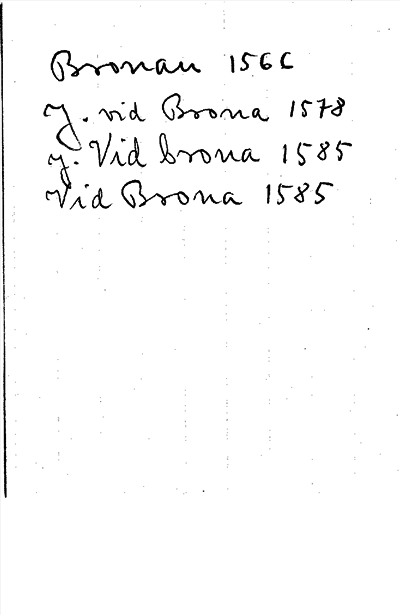 Bronan 1566
J. vid Brona 1578
J. Vid brona 1585
Vid Brona 1585